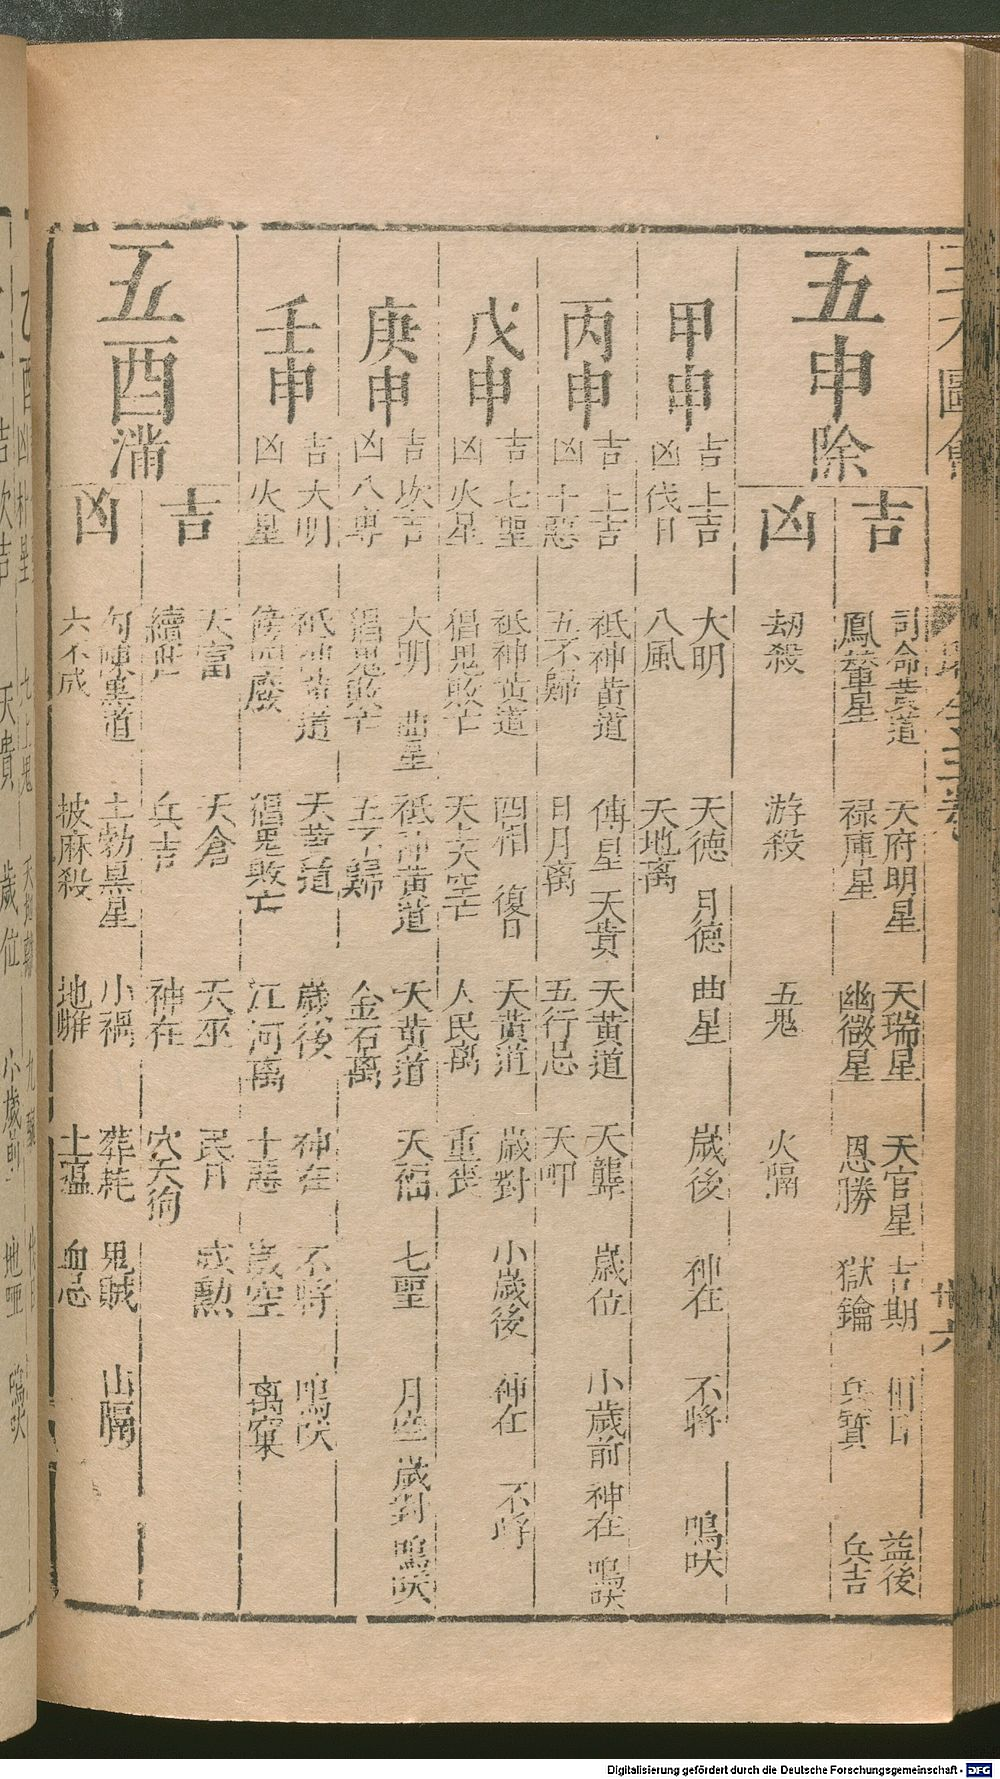 五申除
吉
司命黃道 天府明星 天瑞星 天官星 吉期 益後
鳳輦星 祿庫星 幽微星 恩勝 獄鑰 兵吉
凶
劫殺 游殺 五鬼 火隔
甲申
吉 上吉 大明 天德 月德 曲星 歲後 神在 不將 鳴吠
凶 伐日 八風 天地離
丙申
吉 上吉 祇神黃道 傳星 天貴 天黃道 天聾 歲位 小歲前 神在 鳴吠
凶 十惡 五不歸 日月離 五行忌
戊申
吉 七聖 祇神黃道 四相 復日 天黃道 歲對 小歲後 神在 不將
凶 火星 猖鬼敗亡 人民離 重喪
庚申
吉 大明 曲星 祇神黃道 天黃道 天福 七聖 歲對 鳴吠
凶 八專 猖鬼敗亡 五不歸 金石離
壬申
吉 大明 祇神黃道 天黃道 歲後 神在 不將 鳴吠
凶 火星 猖鬼敗亡 江河離 十惡 歲空 離窠
五酉滿
吉
天富 天倉 天巫 民日
續世 兵吉 神在 穴天狗
凶
勾陳黑道 土勃黑星 小禍 葬耗 鬼賊 山隔
六不成 披麻殺 血忌
Digitalisierung gefördert durch die Deutsche Forschungsgemeinschaft - DFG